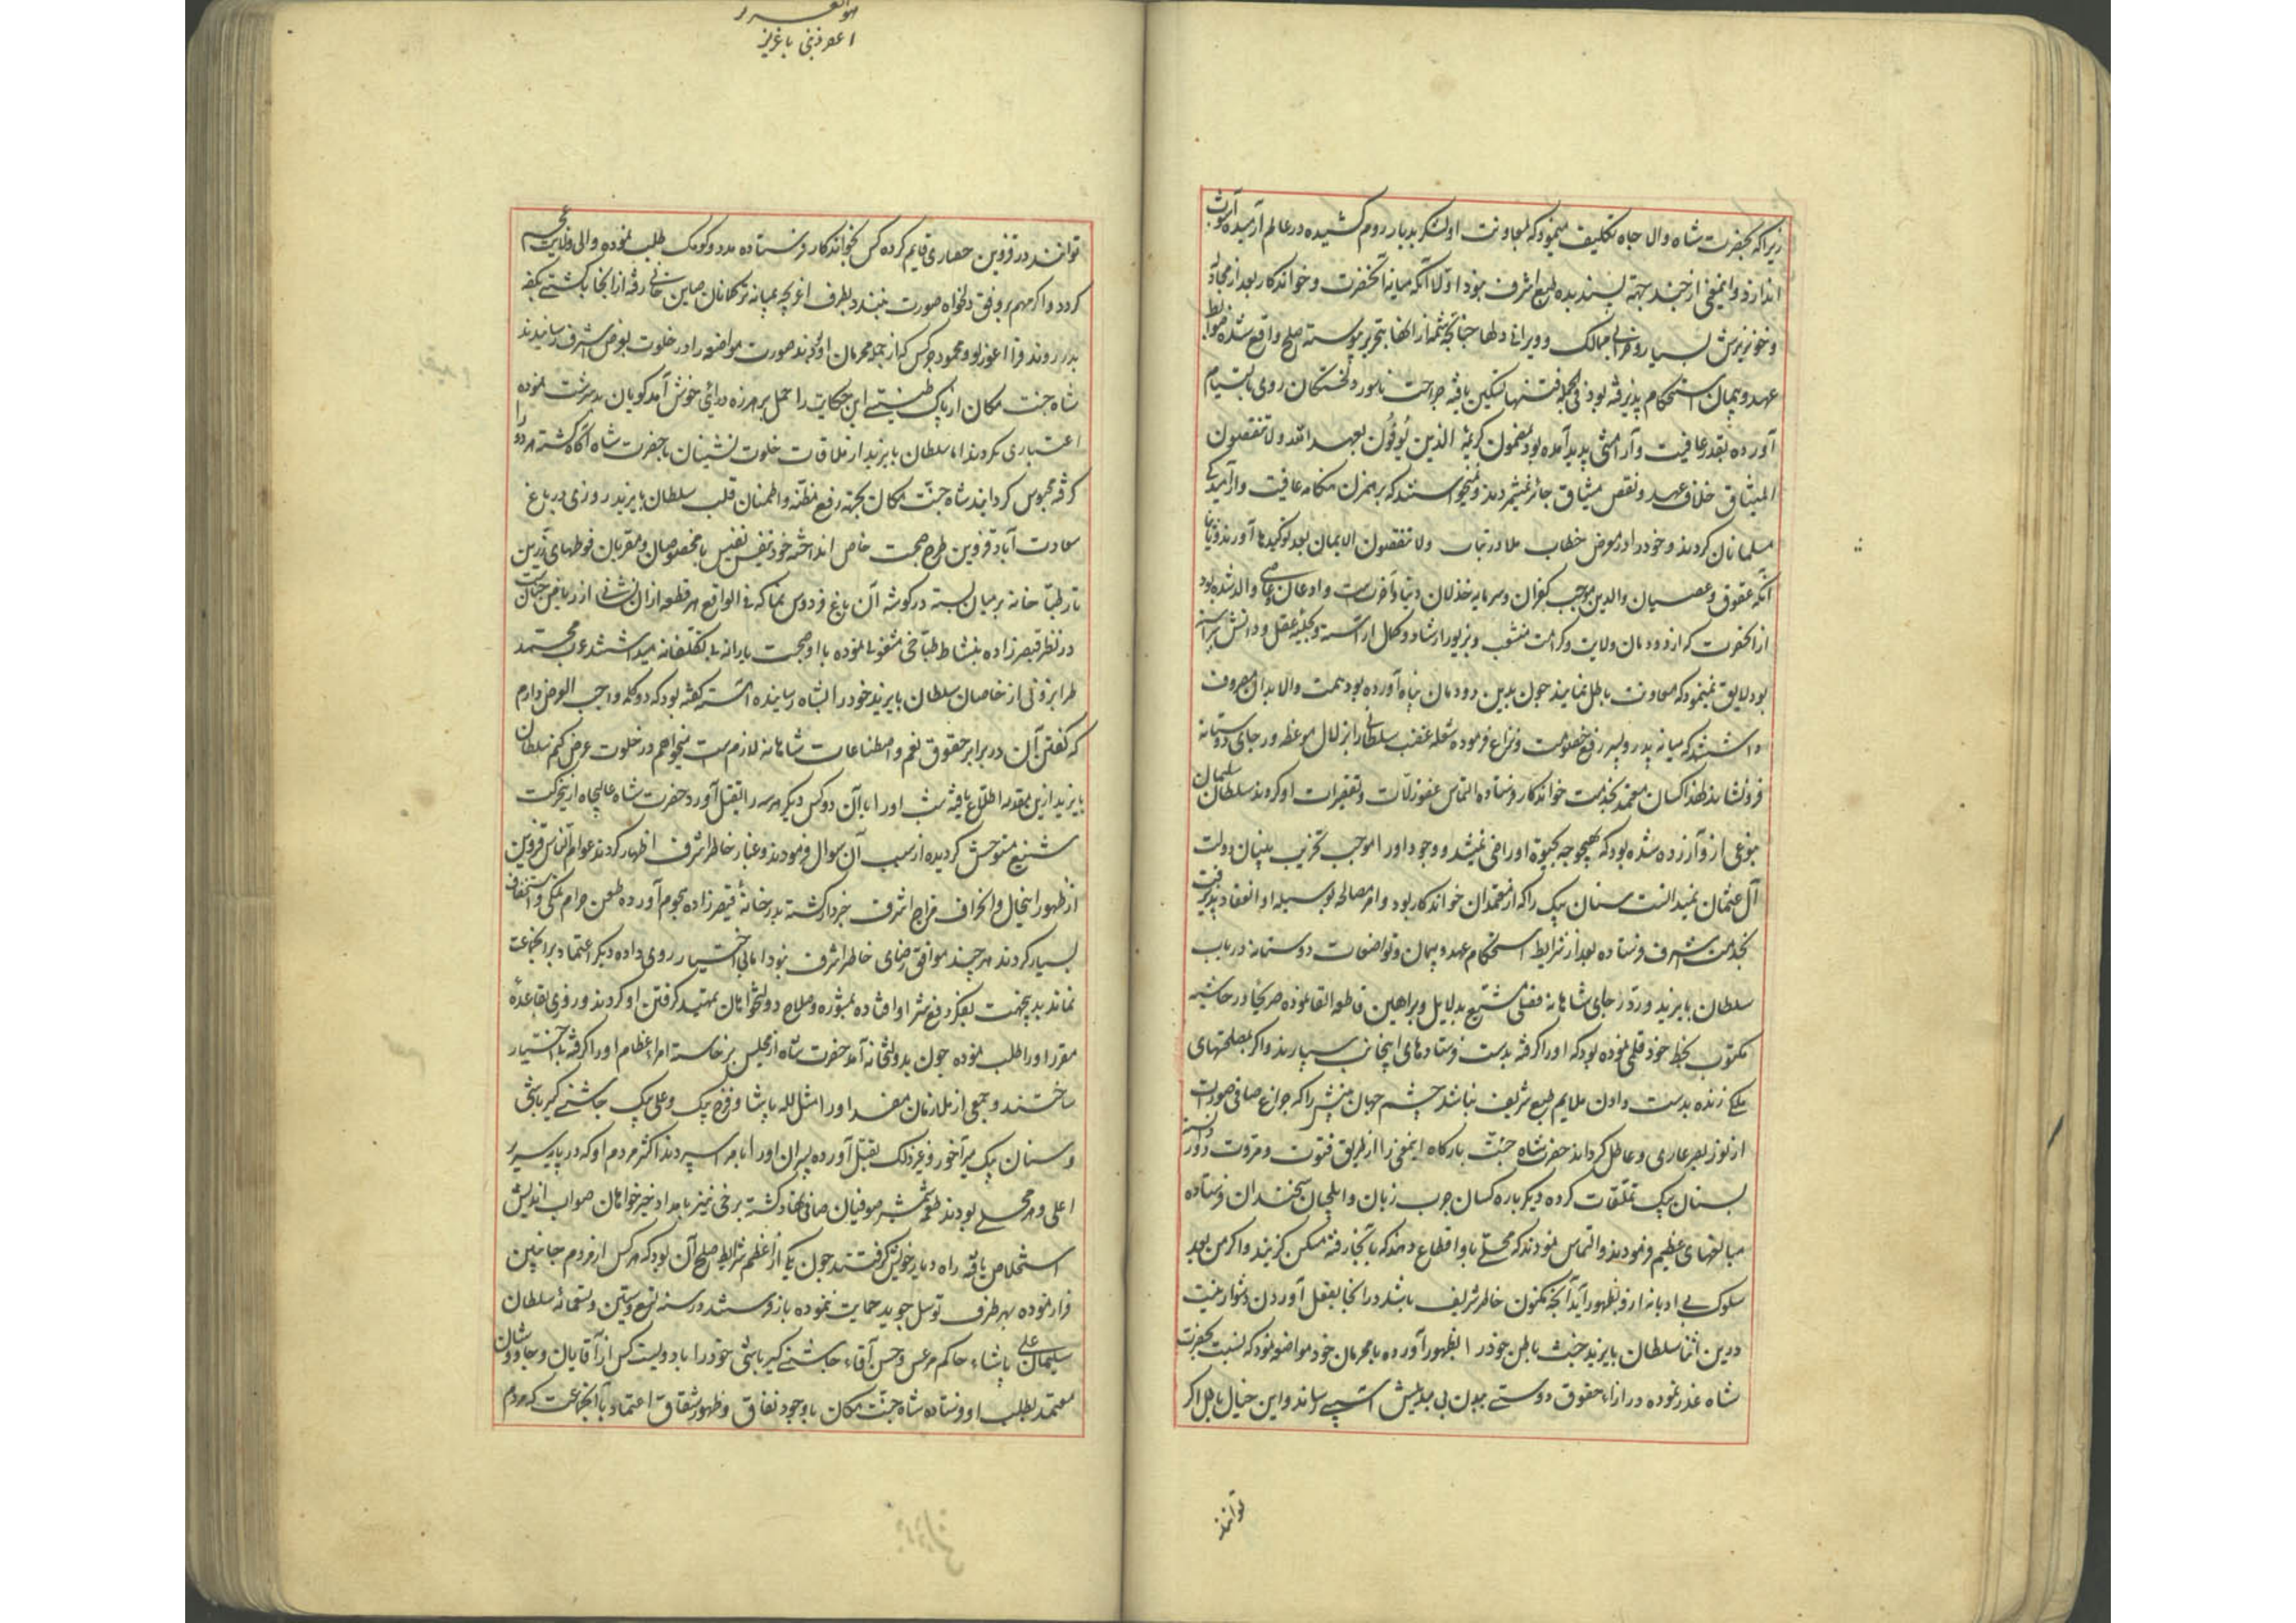 زیرا که بحضرت شاه والا جاه تکلیف مینمود که بمعاونت او لشکر بدیار روم کشیده در عالم آرمیده آشوب
اندازد و اینمعنی از چند جهة پسندیده طبع اشرف نبود اولا آنکه میانه آنحضرت و خواندکار بعد از مجادله
و خونریزش بسیار و خرابی ممالک و ویرانی دلها چنانچه شمه از انها بتحریر پیوسته صلح واقع شده ضوابط
عهد و پیمان استحکام پذیرفته بود فی الجمله فتنها تسکین یافته جراحت ناسور دلخستگان روی بالتیام
آورده بقدر عافیت و آرامشی پدید آمده بود بمضمون کریمه الذین یوفون بعهد الله ولا ینقضون
المیثاق خلاف عهد و نقض میثاق جائز نمیشمردند و نمیخواستند که برهمزن هنکامه عافیت و آرامیدکی
مسلمانان کردند و خود را در معرض خطاب ولا تنقضون الایمان بعد توکیدها آورند و ثانیا
آنکه عقوق و عصیان والدین موجب کفران و سرمایه خذلان دنیا و آخرتست و او عاق و عاصی والد شده بود
از آنحضرت که از دودمان ولایت و کرامت منشعب و بزیور ارشاد و کمال آراسته و بحلیه عقل و دانش پیراسته
بود لایق نمینمود که معاونت باطل نمایند چون بدین دودمان پناه آورده بود همت والا بدان مصروف
داشتند که میانه پدر و پسر رفع خصومت و نزاع فرموده شعله غضب سلطانی را بزلال موعظه و رجای دوستانه
فرونشانند لهذا کسان معتمد بخدمت خواندکار فرستاده التماس عفو زلات و تقصیرات او کردند سلطان سلیمان
بنوعی ازو آزرده شده بود که بهیچوجه بحیوة او راضی نمیشد و وجود او را موجب تخریب بنیان دولت
آل عثمان میدانست سنان بیک را که از معتمدان خواندکار بود و امر مصالحه بوسیله او انعقاد پذیرفت
بخدمت اشرف فرستاده بعد از شرایط استحکام عهد و پیمان و تواضعات دوستانه در باب
سلطان بایزید و رد رجای شاهانه فصلی مشبع بدلایل و براهین قاطعه القا نموده صریحا در حاشیه
مکتوب بخط خود قلمی نموده بود که او را کرفته بدست فرستادهای اینجانب سپارند و اکر بمصلحتهای
ملکی زنده بدست دادن ملایم طبع شریف نباشد چشم جهان بینش را که چراغ صافی صورت است
از نور بصر عاری و عاطل کردانند حضرت شاه جنت بارکاه اینمعنی را از طریق فتوت و مروت دور دانسته
بسنان بیک تملقات کرده دیکر باره کسان چرب زبان و ایلچیان سخندان فرستاده
مبالغهای عظیم فرمودند و التماس نمودند که محلی باو اقطاع دهند که بآنجا رفته مسکن کزیند و اکر من بعد
سلوک بی ادبانه ازو بظهور آید آنچه مکنون خاطر شریف باشد در آنجا بفعل آوردن دشوار نیست
درین اثنا سلطان بایزید خبث باطن خود را بظهور آورده با محرمان خود مواضعه نمود که نسبت بحضرت
شاه غدر نموده در ازاء حقوق دوستی ببدن بی بدیلش آسیبی رساند و این خیال باطل اکر
توانند
اعوذ بنی یا عزیز
توانند در قزوین حصاری قایم کرده کس بخواندکار فرستاده مدد و کومک طلب نموده والی ولایت عجم
کردد و اکر مهم بر وفق دلخواه صورت نبندد بطرف اغریچه بمیانه ترکمانان صاین خانی رفته از آنجا بکشتی بکفه
بدر روند قرا اغورلو و محمود چرکس که از جمله محرمان او بودند صورت مواضعه را در خلوت بعرض اشرف رسانیدند
شاه جنت مکان از پاک طینتی این حکایت را حمل بر هرزه درائی خوش آمد کویان بدسرشت نموده
اعتباری نکردند اما سلطان بایزید از ملاقات خلوت نشینان با حضرت شاه آکاه کشته هر دو را
کرفته محبوس کردانید شاه جنت مکان بجهة رفع مظنه و اطمنان قلب سلطان بایزید روزی در باغ
سعادت آباد قزوین طرح صحبت خاص انداخته خود بنفس نفیس با مخصوصان و مقربان فوطهای زرین
تار طباخانه بر میان بسته در کوشه آن باغ فردوس نما که فی الواقع هر قطعه ازان نشانی از ریاض جنان است
در نظر قیصرزاده بنشاط طباخی مشغولی نموده با او صحبت یارانه بی تکلفانه میداشتند عرب محمد
طرابزونی از خاصان سلطان بایزید خود را بشاه رسانیده آهسته کفته بود که دو کلمه واجب العرض دارم
که کفتن آن در برابر حقوق نعم و اصطناعات شاهانه لازمست میخواهم در خلوت عرض کنم سلطان
بایزید ازین مقدمه اطلاع یافته شب او را با آن دو کس دیکر هر سه را بقتل آورد حضرت شاه عالیجاه ازین حرکت
شنیع متوحش کردیده از سبب آن سوال فرمودند و غبار خاطر اشرف اظهار کردند عوام الناس قزوین
از ظهور اینحال و انحراف مزاج اشرف خبردار کشته بدر خانه قیصرزاده هجوم آورده طعن حرام نمکی و استخفاف
بسیار کردند هر چند موافق رضای خاطر اشرف نبود اما بی اختیار روی داده دیکر اعتماد بر آنجماعت
نماند بدینجهت بفکر دفع شر او افتاده بمشوره و صلاح دولتخواهان تمهید کرفتن او کردند و روزی بقاعده
مقرر او را طلب نموده چون بدولتخانه آمد حضرت شاه از مجلس برخاسته امراء عظام او را کرفته بی اختیار
ساختند و جمعی از ملازمان مفسد او را مثل لله پاشا و فرخ بیک و علی بیک چاشنی کیر باشی
و سنان بیک میرآخور و غیر ذلک بقتل آورده پسران او را بامرا سپردند اکثر مردم او که در پایه سریر
اعلی و هر محلی بودند طعمه شمشیر صوفیان صافی نهاد کشته برخی نیز بامداد خیرخواهان صواب اندیش
استخلاص یافته راه دیار خویش کرفتند چون یکی از اعظم شرایط صلح آن بود که هر کس از مردم جانبین
فرار نموده بهر طرف توسل جوید حمایت ننموده باز فرستند در سنه تسع و ستین و تسعمائه سلطان
سلیمان علی پاشاء حاکم مرعش و حسن آقاء چاشنی کیر باشی خود را با دویست کس از آقایان و چاووشان
معتمد بطلب او فرستاده شاه جنت مکان با وجود نفاق و ظهور شقاق اعتماد بآنجماعت که مردم